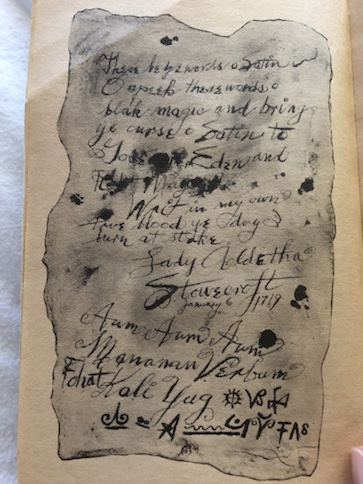 These be ye words o Satin
O speek these words o
blak magic and bring
ye curse o Satin to
Eden and
Writ in my own
true blood ye day I
burn at stake
Lady
Stowecroft
January 6 1719
Aum Aum Aum
Mananam Verbum
Fohat
Kali Yug